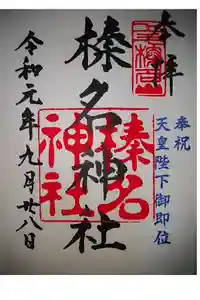 奉拝
奉祝
天皇陛下御即位
榛名神社
榛名
神社
令和元年九月廿八日